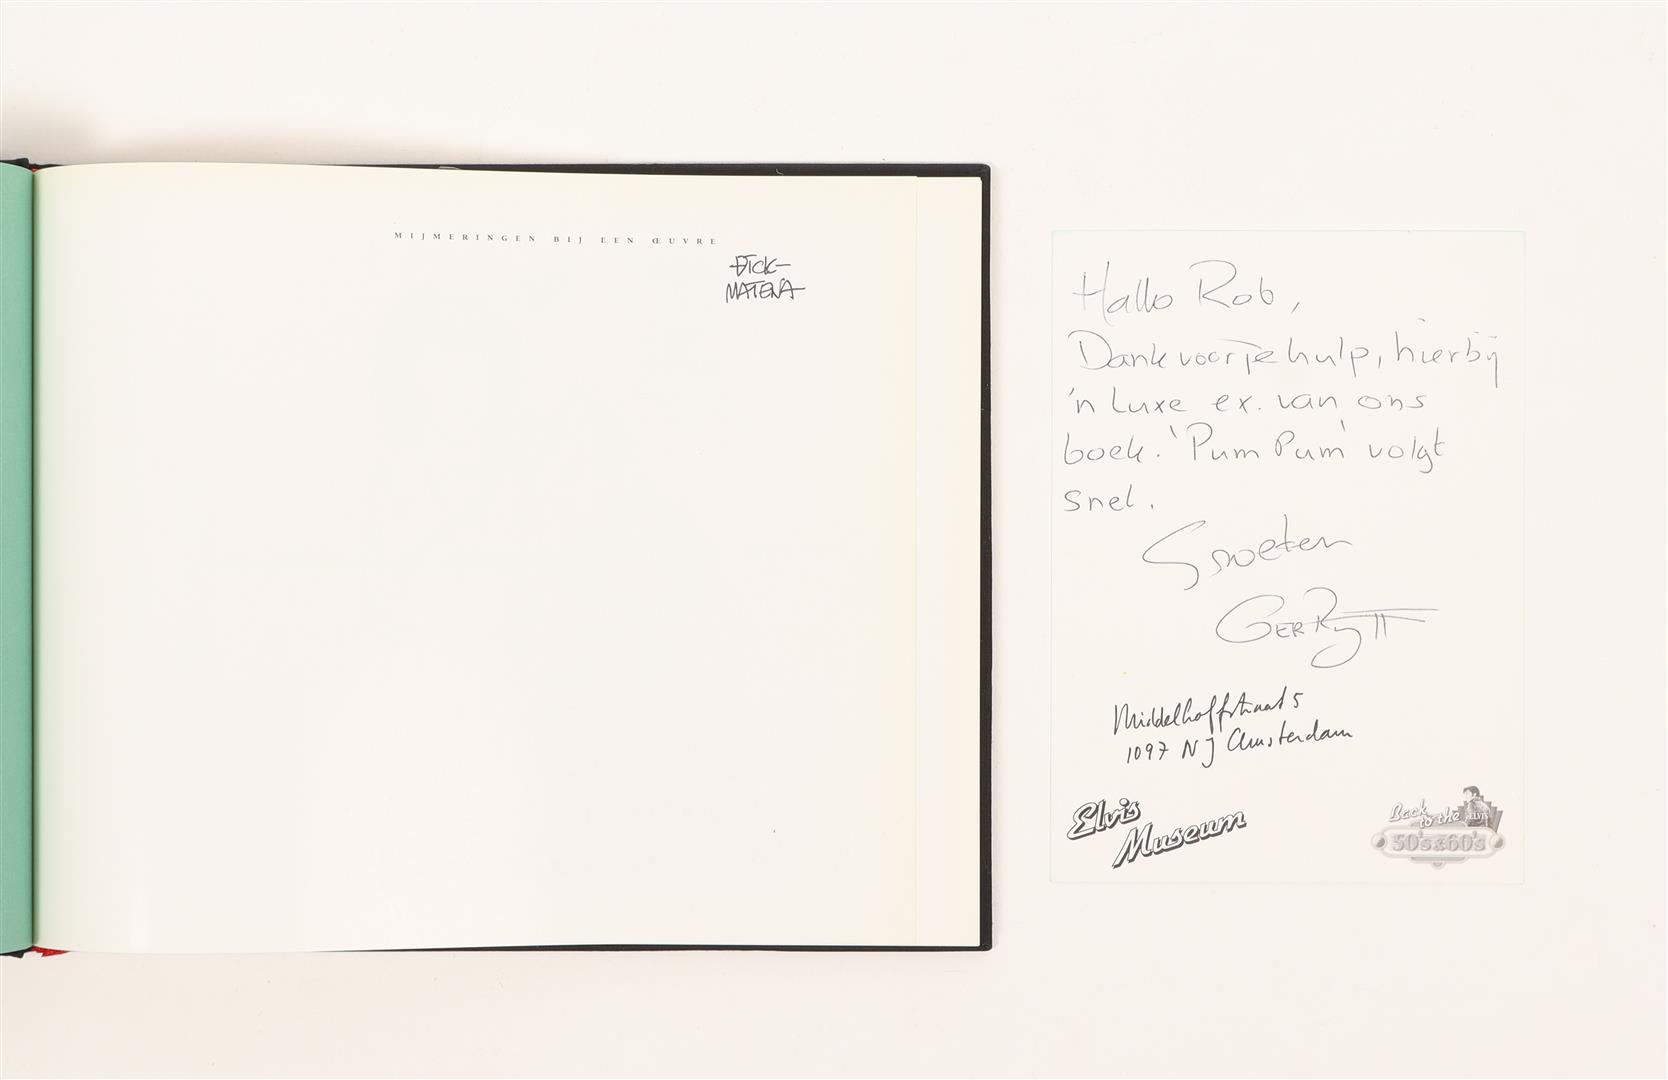 MIJMERINGEN BIJ EEN ŒUVRE
DICK
MATENA
Hallo Rob,
Dank voor je hulp, hierbij
'n luxe ex. van ons
boek. 'Pum Pum' volgt
snel.
Groeten
Middelhoffstraat 5
1097 NJ Amsterdam
Elvis
Museum
Back
to the
50's&60's